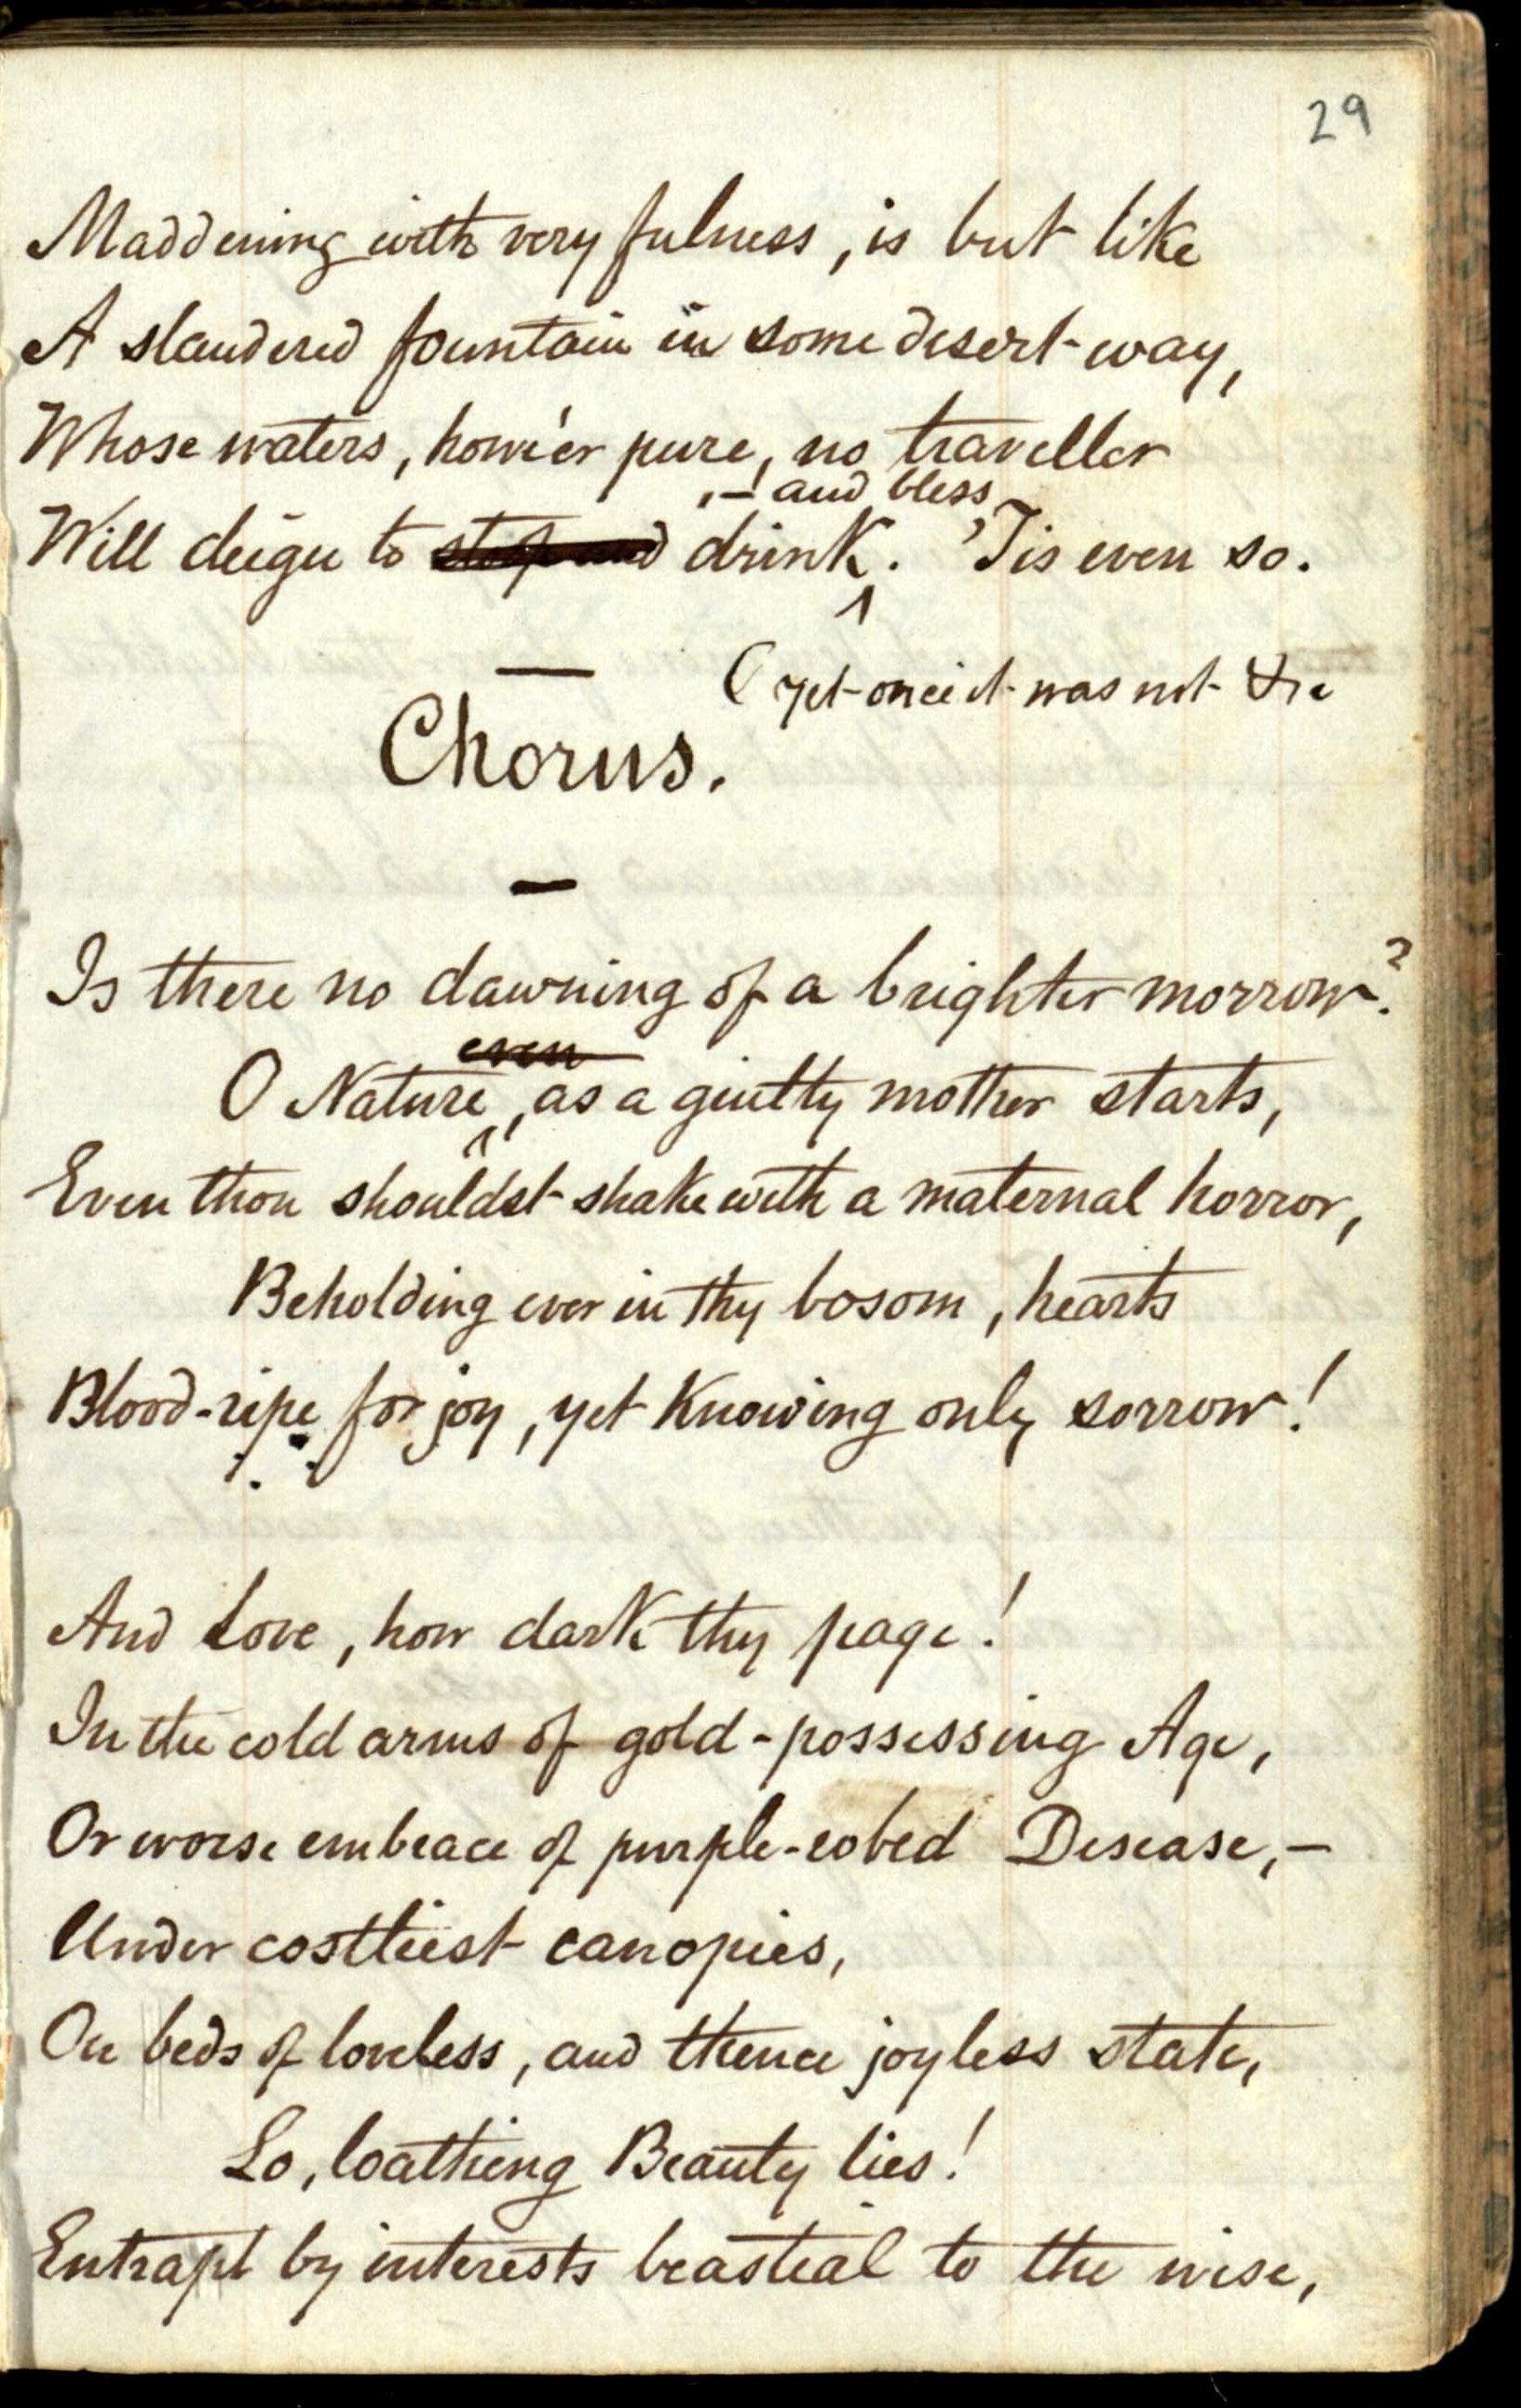 29
Maddening with very fulness, is but like
A slandered fountain in some desert way,
Whose waters, howe'er pure, no traveller
,— and bless
Will deign to stop and drink. 'Tis even so.
(yet once it was not &c
Chorus.
Is there no dawning of a brighter morrow?
even
O Nature, as a guilty mother starts,
Even thou shouldst shake with a maternal horror,
Beholding ever in thy bosom, hearts
Blood-ripe for joy, yet knowing only sorrow!
And Love, how dark thy page!
In the cold arms of gold-possessing Age,
Or worse embrace of purple-robed Disease,—
Under costliest canopies,
On beds of loveless, and thence joyless state,
Lo, loathing Beauty lies!
Entrapt by interests beastial to the wise,